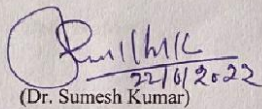 22/6/2022
(Dr. Sumesh Kumar)